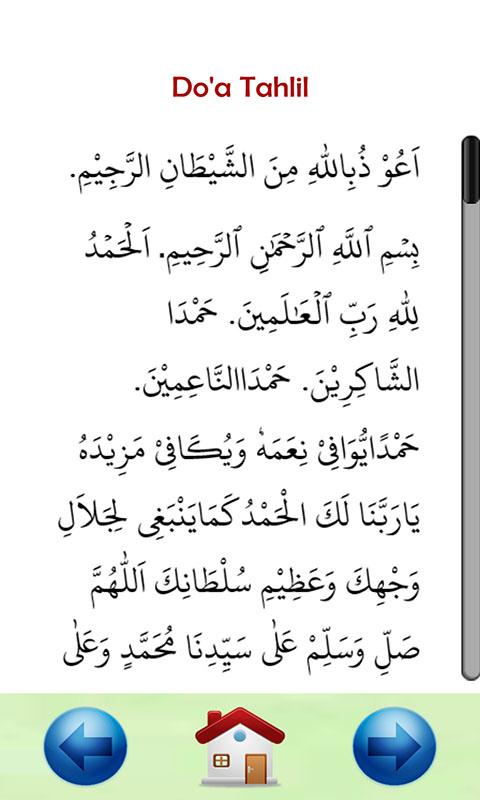 Do'a Tahlil
اَعُوْ ذُبِاللهِ مِنَ الشَّيْطَانِ الرَّجِيْمِ.
بِسْمِ ٱللَّهِ ٱلرَّحْمَٰنِ ٱلرَّحِيمِ. اَلْحَمْدُ
لِلّٰهِ رَبِّ ٱلْعَٰلَمِينَ. حَمْدَا
الشَّاكِرِيْنَ. حَمْدَاالنَّاعِمِيْنَ.
حَمْدًايُّوَافِىْ نِعَمَهٗ وَيُكَافِىْ مَزِيْدَهُ
يَارَبَّنَا لَكَ الْحَمْدُ كَمَايَنْبَغِى لِجَلاَلِ
وَجْهِكَ وَعَظِيْمِ سُلْطَانِكَ اَللّٰهُمَّ
صَلِّ وَسَلِّمْ عَلٰى سَيِّدِنَا مُحَمَّدٍ وَعَلٰى